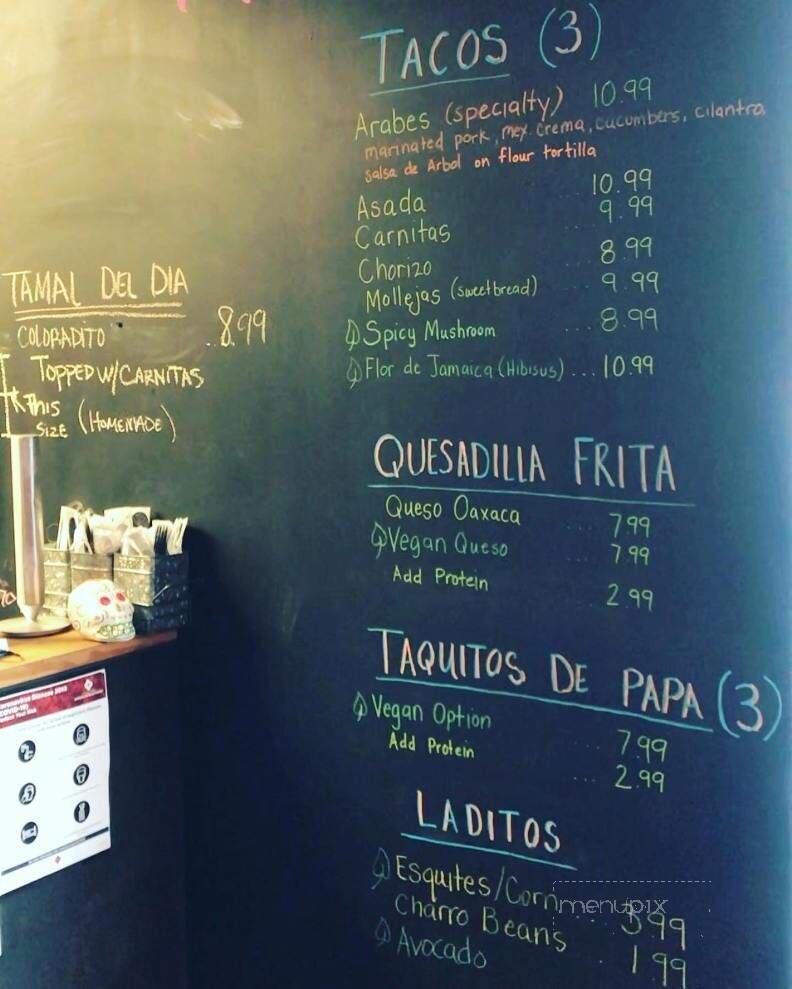 TACOS (3)
Arabes (specialty) 10.99
marinated pork, mex. crema, cucumbers, cilantro
salsa de Arbol on flour tortilla
Asada ... 10.99
Carnitas ... 9.99
Chorizo ... 8.99
Mollejas (sweetbread) ... 9.99
Spicy Mushroom ... 8.99
Flor de Jamaica (Hibisus) ... 10.99
TAMAL DEL DIA
COLORADITO .. 8.99
TOPPED W/CARNITAS
* THIS
SIZE (HOMEMADE)
QUESADILLA FRITA
Queso Oaxaca ... 7.99
Vegan Queso ... 7.99
Add Protein ... 2.99
TAQUITOS DE PAPA (3)
Vegan Option ... 7.99
Add Protein ... 2.99
LADITOS
Esquites/Corn
Charro Beans .. 3.99
Avocado .. 1.99
menupix
(COVID-19)